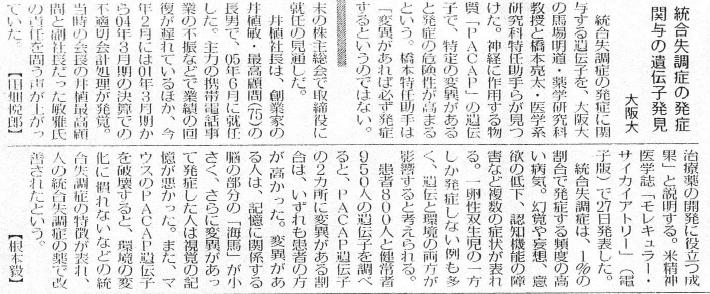 統合失調症の発症
関与の遺伝子発見
大阪大
統合失調症の発症に関
与する遺伝子を、大阪大
の馬場明道・薬学研究科
教授と橋本亮太・医学系
研究科特任助手らが見つ
けた。神経に作用する物
質「PACAP」の遺伝
子で、特定の変異がある
と発症の危険性が高まる
という。橋本特任助手は
「変異があれば必ず発症
するというのではない。
治療薬の開発に役立つ成
果」と説明する。米精神
医学誌「モレキュラー・
サイカイアトリー」(電
子版)で27日発表した。
統合失調症は、1%の
割合で発症する頻度の高
い病気。幻覚や妄想、意
欲の低下、認知機能の障
害など複数の症状が表れ
る。一卵性双生児の一方
しか発症しない例も多
く、遺伝と環境の両方が
影響すると考えられる。
患者800人と健常者
950人の遺伝子を調べ
ると、PACAP遺伝子
の2カ所に変異がある割
合は、いずれも患者の方
が高かった。変異があ
る人は、記憶に関係する
脳の部分の「海馬」が小
さく、さらに変異があっ
て発症した人は視覚の記
憶が悪かった。また、マ
ウスのPACAP遺伝子
を破壊すると、環境の変
化に慣れないなどの統
合失調症の特徴が表れ、
人の統合失調症の薬で改
善されたという。
【根本毅】
末の株主総会で取締役に
就任の見通し。
井植社長は、創業家の
井植敏・最高顧問の
長男で、05年6月に就任
した。主力の携帯電話事
業の不振などで業績の回
復が遅れているほか、今
年2月には01年3月期か
ら04年3月期の決算での
不適切会計処理が発覚。
当時の会長の井植最高顧
問と副社長だった敏雅氏
の責任を問う声が上がっ
ていた。